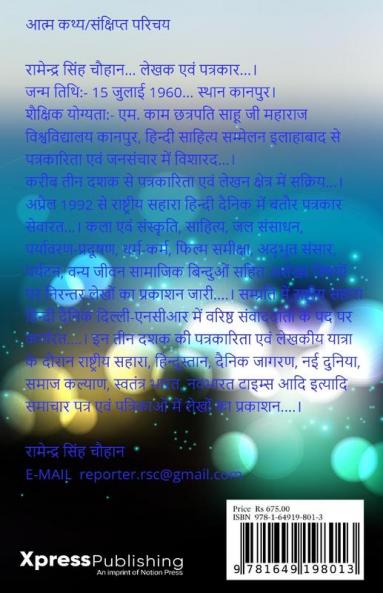 आत्म कथ्य/संक्षिप्त परिचय
रामेन्द्र सिंह चौहान... लेखक एवं पत्रकार...।
जन्म तिथि:- 15 जुलाई 1960... स्थान कानपुर।
शैक्षिक योग्यता:- एम. काम छत्रपति साहू जी महाराज
विश्वविद्यालय कानपुर, हिन्दी साहित्य सम्मेलन इलाहाबाद से
पत्रकारिता एवं जनसंचार में विशारद...।
करीब तीन दशक से पत्रकारिता एवं लेखन क्षेत्र में सक्रिय...।
अप्रैल 1992 से राष्ट्रीय सहारा हिन्दी दैनिक में बतौर पत्रकार
सेवारत...। कला एवं संस्कृति, साहित्य, जल संसाधन,
पर्यावरण-प्रदूषण, धर्म-कर्म, फिल्म समीक्षा, अद्भुत संसार,
पर्यटन, वन्य जीवन सामाजिक बिन्दुओं सहित
पर निरन्तर लेखों का प्रकाशन जारी....। सम्प्रति में राष्ट्रीय सहारा
हिन्दी दैनिक दिल्ली-एनसीआर में वरिष्ठ संवाददाता के पद पर
कार्यरत....। इन तीन दशक की पत्रकारिता एवं लेखकीय यात्रा
के दौरान राष्ट्रीय सहारा, हिन्दुस्तान, दैनिक जागरण, नई दुनिया,
समाज कल्याण, स्वतंत्र भारत, नवभारत टाइम्स आदि इत्यादि
समाचार पत्र एवं पत्रिकाओं में लेखों का प्रकाशन....।
रामेन्द्र सिंह चौहान
E-MAIL reporter.rsc@gmail.com
Price Rs 675.00
ISBN 978-1-64919-801-3
9 781649 198013
XpressPublishing
An imprint of Notion Press